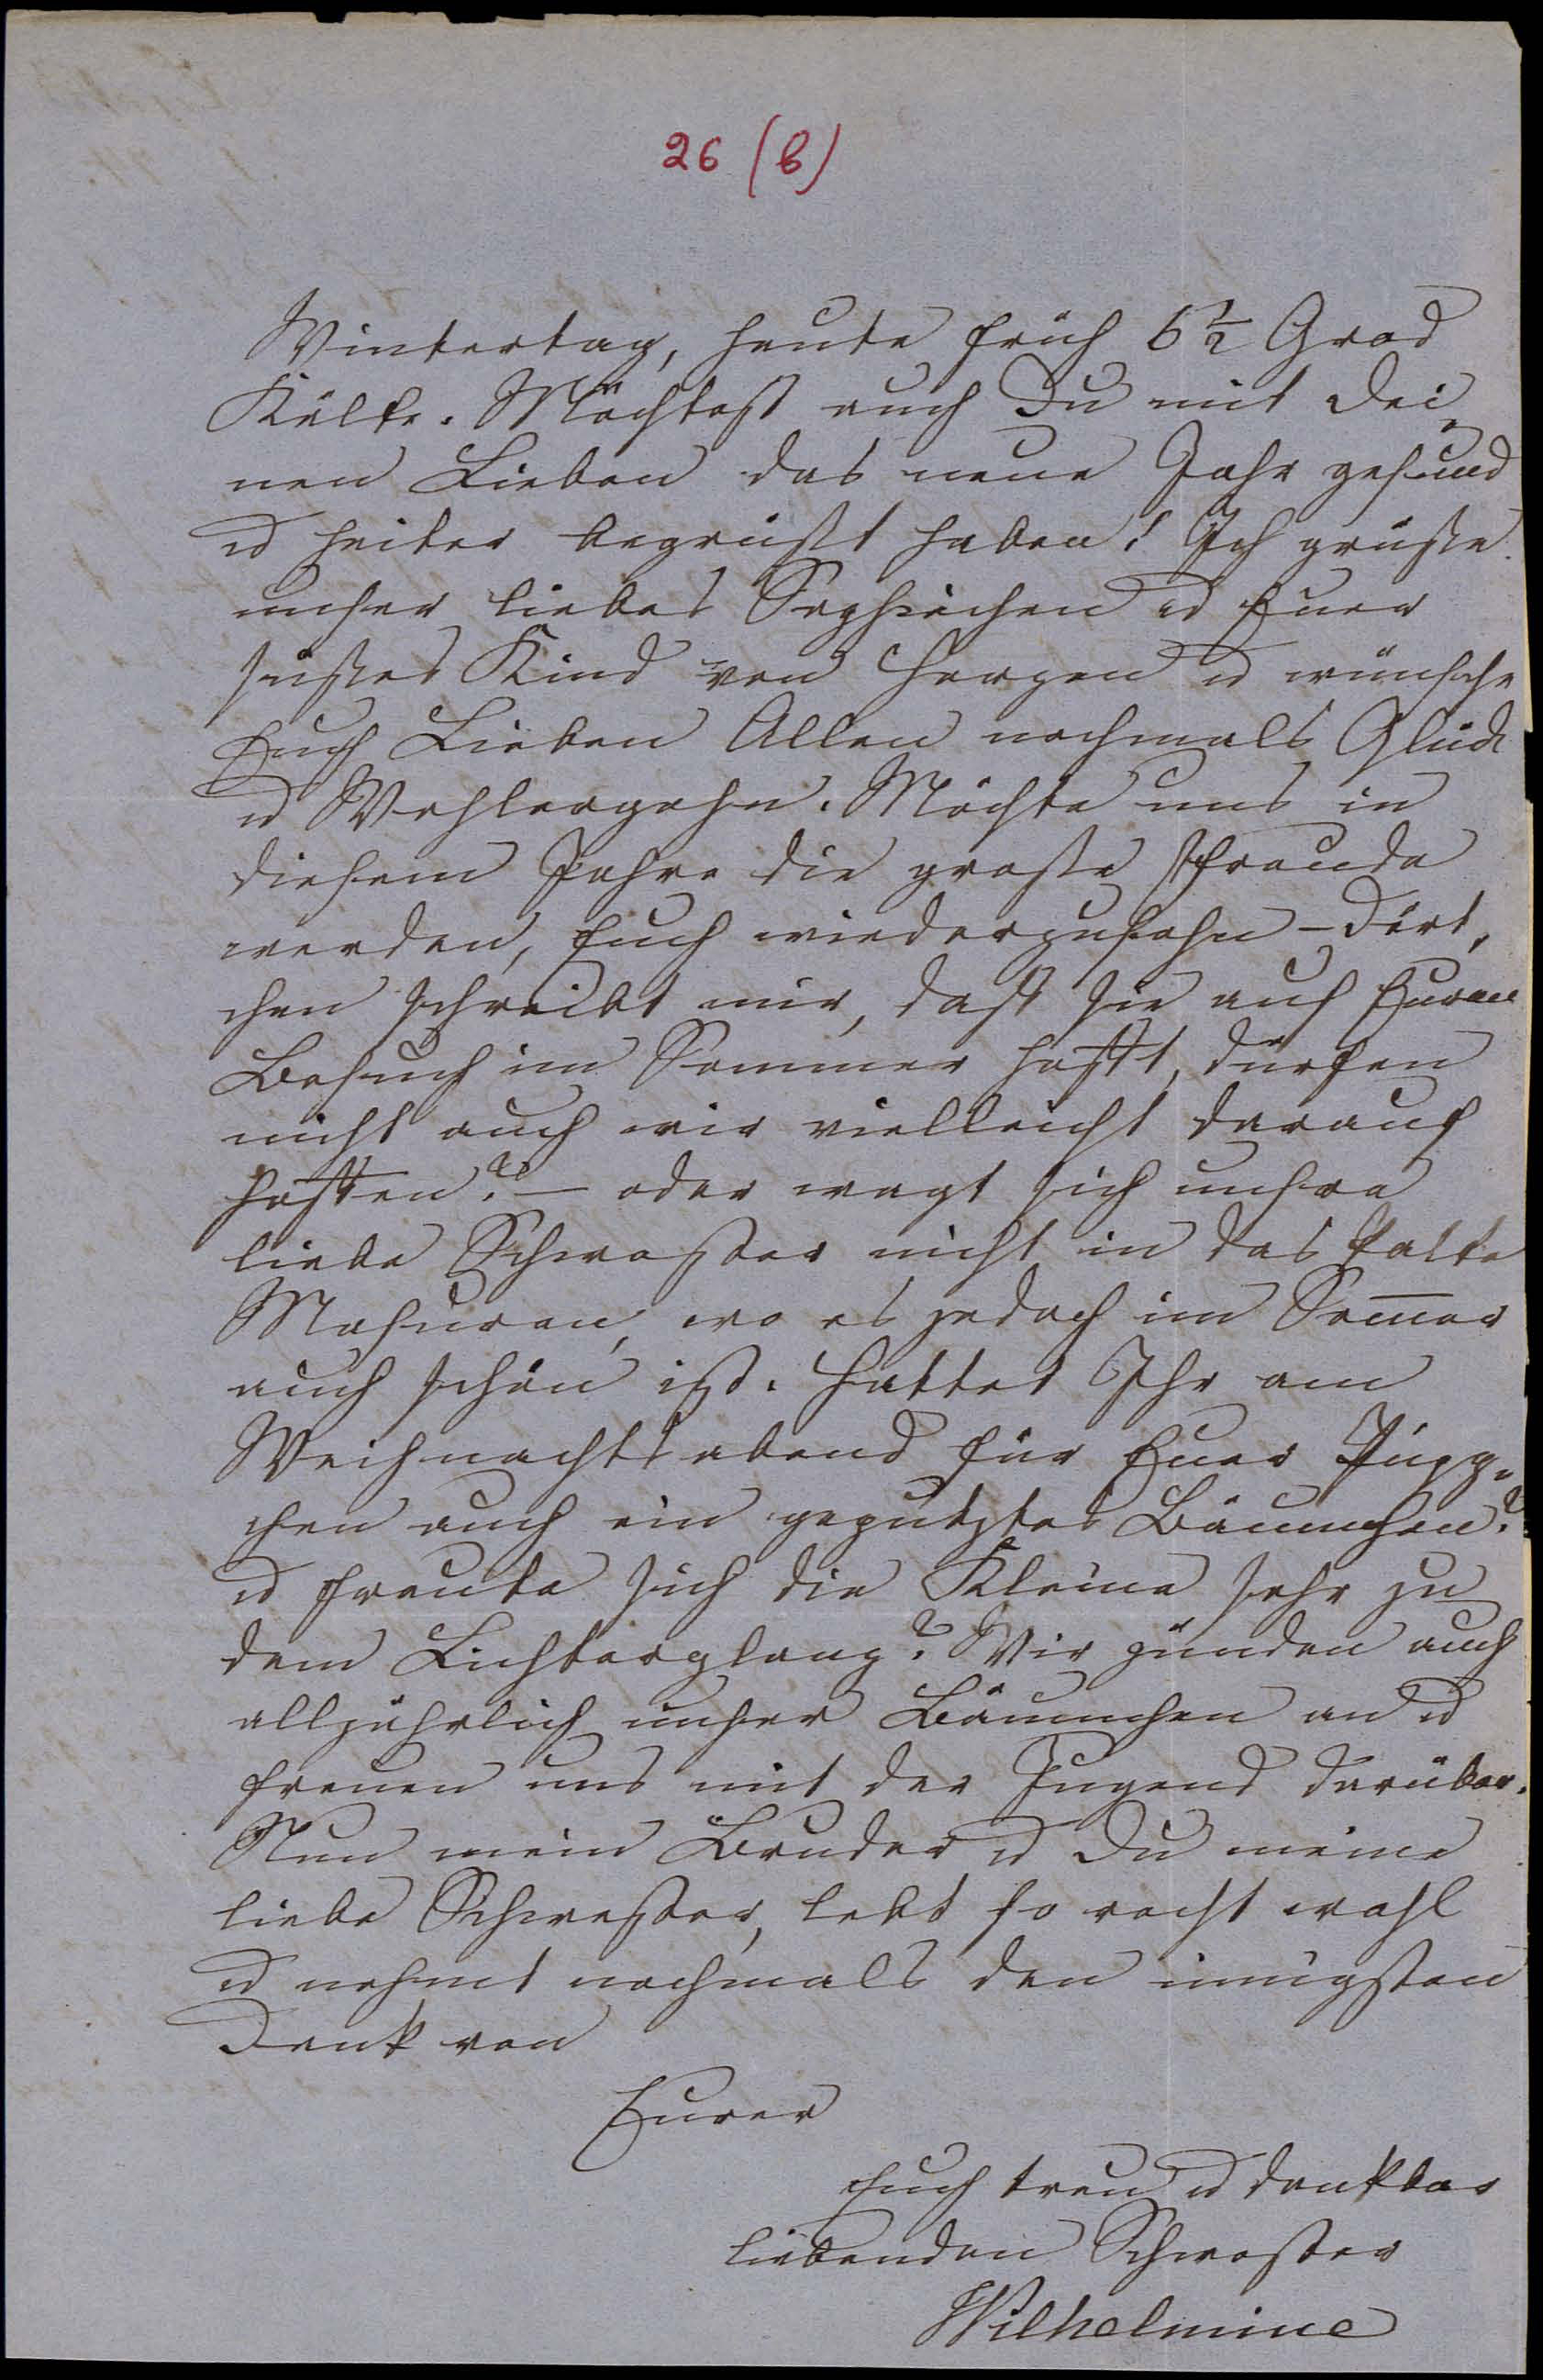 26 (b)
Wintertag, heute früh 6½ Grad
Kälte. Möchtest auch Du mit Dei-
nen Lieben das neue Jahr gesund
u heiter begrüßt haben! Ich grüße
unser liebes Sophiechen u Euer
süßes Kind von Herzen u wünsche
Euch Lieben Allen nochmals Glück
u Wohlergehn. Möchte uns in
diesem Jahre die große Freude
werden, Euch wiederzusehn – Dört-
chen schreibt mir, daß sie auf Euren
Besuch im Sommer hofft, dürfen
nicht auch wir vielleicht darauf
hoffen? – oder wagt sich unsre
liebe Schwester nicht in das kalte
Masuren, wo es jedoch im Som̅er
auch schön ist. Hattet Ihr am
Weihnachtsabend für Euer Püpp-
chen auch ein geputztes Bäumchen?
u freute sich die Kleine sehr zu
dem Lichterglanz? Wir zünden auch
alljährlich unser Bäumchen an u
freuen uns mit der Jugend darüber.
Nun mein Bruder u Du meine
liebe Schwester, lebt so recht wohl
u nehmt nochmals den innigsten
Dank von
Eurer
Euch treu u dankbar
liebenden Schwester
Wilhelmine